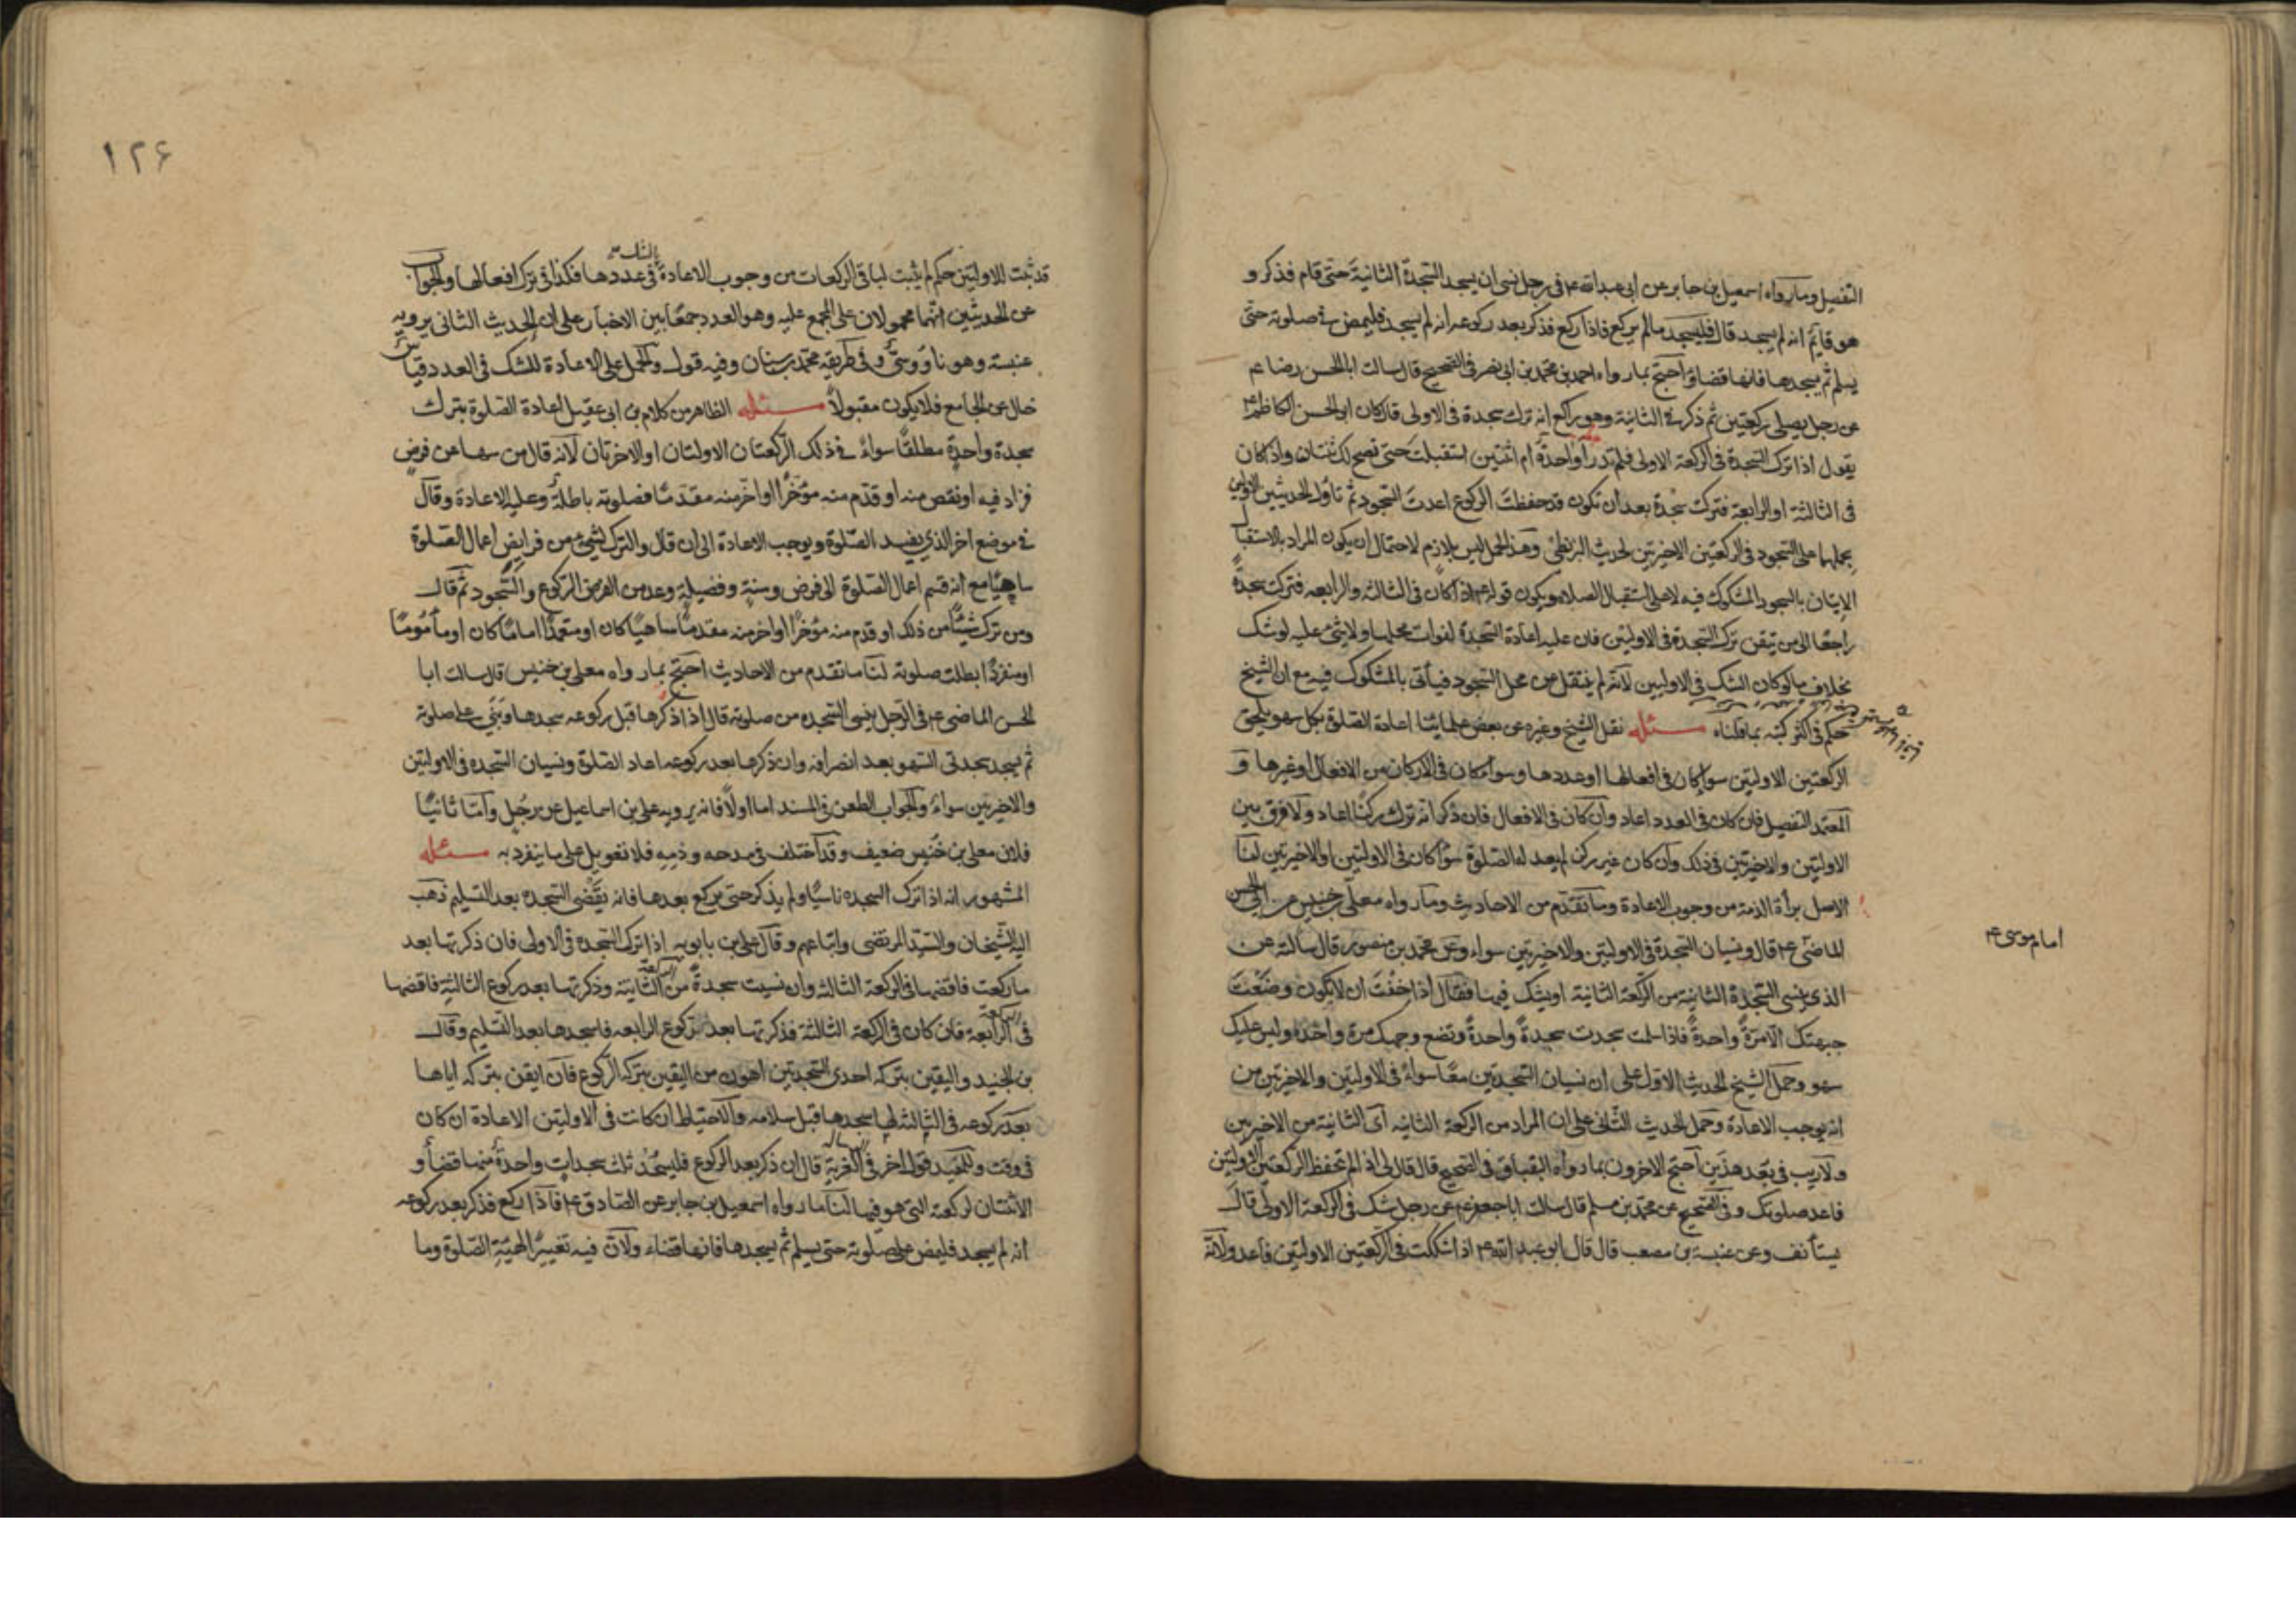 التفصيل وما رواه اسمعيل بن جابر عن ابى عبدالله ع فى رجل نسى ان يسجد السجدة الثانية حتى قام فذكر و
هو قائم انه لم يسجد قال فليسجد ما لم يركع فاذا ركع فذكر بعد ركوعه انه لم يسجد فليمض فى صلوته حتى
يسلم ثم يسجدها فانها قضاؤ احتج بما رواه احمد بن محمد بن ابى نصر فى الصحيح قال سالت ابا الحسن رضا عم
عن رجل يصلى ركعتين ثم ذكر فى الثانية وهو راكع انه ترك سجدة فى الاولى قال كان ابو الحسن الكاظم ع
يقول اذا ترك السجدة فى الركعة الاولى فلم تدر أواحدةً ام اثنتين استقبلتَ حتى تصح لك ثنتان واذا كان
فى الثالثة او الرابعة فتركت سجدة بعد ان تكون قد حفظتَ الركوع اعدتَ السجود ثم تاول الحديثين الاولين
بحملهما على السجود فى الركعتين الاخيرتين لحديث البزنطى وهذا الحمل ليس بلازم لاحتمال ان يكون المراد بالاستقبال
الاتيان بالسجود المشكوك فيه لا على استقبال الصلاة ويكون قوله ع اذا كان فى الثالثة والرابعه فتركت سجدةً
راجعًا الى من تيقن ترك السجدة فى الاوليتين فان عليه اعادة السجدة لفوات محلها ولا شئ عليه لو شك
بخلاف ما لو كان الشك فى الاوليين لانه لم ينتقل من محل السجود فيأتى بالمشكوك فيه مع ان الشيخ
حكم فى اكثر كتبه بما قلناه مسئله نقل الشيخ وغيره عن بعض علمائنا اعادة الصلوة بكل سهو يلحق
الركعتين الاوليتين سواء كان فى افعالها او عددها وسواء كان فى الاركان من الافعال او غيرها و
المعتمد التفصيل فان كان فى العدد اعاد وان كان فى الافعال فان ذكر انه ترك ركنًا اعاد ولا فرق بين
الاوليتين والاخيرتين فى ذلك وان كان غير ركن لم يعد له الصلوة سواء كان فى الاوليتين او الاخيرتين لنا
الاصل برأة الذمة من وجوب الاعادة وما تقدم من الاحاديث وما رواه معلى بن خنيس عن ابى الحسن
الماضى ع قال ونسيان السجدة فى الاوليتين والاخيرتين سواء وعن محمد بن منصور قال سالته عن
امام موسى ع
الذى ينسى السجدة الثانية من الركعة الثانية او يشك فيها فقال اذا خفتَ ان لا يكون وضعتَ
جبهتك الا مرة واحدةً فاذا سلمت سجدت سجدةً واحدةً وتضع وجهك مرة واحدة وليس عليك
سهو وحمل الشيخ الحديث الاول على ان نسيان السجدتين معًا سواءٌ فى الاوليتين والاخيرتين من
انه يوجب الاعادة وحمل الحديث الثانى على ان المراد من الركعة الثانية اى الثانية من الاخيرتين
ولا ريب فى بعد هذين احتج الاخرون بما رواه البقباق فى الصحيح قال قال لى اذا لم تحفظ الركعتين الاوليتين
فاعد صلوتك وفى الصحيح عن محمد بن مسلم قال سالت ابا جعفر عم عن رجل شك فى الركعة الاولى قال
يستأنف وعن عنبسة بن مصعب قال قال ابو عبد الله ع اذا شككت فى الركعتين الاوليتين فاعد ولانه
۱۲۶
بالشك
قد ثبت للاوليتين حكم لم يثبت لباقى الركعات من وجوب الاعادة فى عددها فكذا فى ترك افعالها والجواب
عن الحديثين انهما محمولان على المجمع عليه وهو العدد جمعًا بين الاخبار على ان الحديث الثانى يرويه
عنبسة وهو ناووسىٌّ و فى طريقه محمد بن سنان وفيه قول والحمل على الاعادة للشك فى العدد قياس
خال عن الجامع فلا يكون مقبولاً مسئله الظاهر من كلام بن ابى عقيل اعادة الصلوة بترك
سجدة واحدة مطلقًا سواءٌ فى ذلك الركعتان الاولتان او الاخرتان لانه قال من سها عن فرض
فزاد فيه او نقص منه او قدم منه مؤخرًا او اخر منه مقدمًا فصلوته باطلة وعليه الاعادة وقال
فى موضع اخر الذى يفسد الصلوة ويوجب الاعادة الى ان قال والترك لشئ من فرايض اعمال الصلوة
ساهيًا مع انه قسم اعمال الصلوة الى فرض وسنة وفضيلة وعد من الفرض الركوع والسجود ثم قال
ومن ترك شيئًا من ذلك او قدم منه مؤخرًا او اخر منه مقدمًا ساهيًا كان او متعمدًا امامًا كان او مأمومًا
او منفردًا بطلت صلوته لنا ما تقدم من الاحاديث احتج بما رواه معلى بن خنيس قال سالت ابا
الحسن الماضى ع فى الرجل ينسى السجده من صلوته قال اذا ذكرها قبل ركوعه سجدها وبنى على صلوته
ثم يسجد سجدتى السهو بعد انصرافه وان ذكرها بعد ركوعه اعاد الصلوة ونسيان السجده فى الاوليتين
والاخيرتين سواء والجواب الطعن فى السند اما اولاً فانه يرويه على بن اسماعيل عن رجُل وامّا ثانيًا
فلان معلى بن خنيس ضعيف وقد اختلف فى مدحه وذمه فلا تعويل على ما ينفرد به مسئله
المشهور انه اذا ترك السجده ناسيًا ولم يذكر حتى يركع بعدها فانه يقضى السجده بعد التسليم ذهب
اليه الشيخان والسيد المرتضى واتباعهم وقال على بن بابويه اذا ترك السجدة فى الاولى فان ذكرتها بعد
ما ركعت فاقضها فى الركعة الثالثه وان نسيت سجدةً من الثانية وذكرتها بعد ركوع الثالثة فاقضها
فى الرابعة فان كان فى الركعة الثالثة فذكرتها بعد ركوع الرابعه فاسجدها بعد التسليم وقال
بن الجنيد واليقين بتركه احدى السجدتين اهون من اليقين بتركه الركوع فان ايقن بتركه اياها
بعد ركوعه فى الثالثه لها سجدها قبل سلامه والاحتياط ان كانت فى الاوليتين الاعادة ان كان
فى وقت وللمفيد قول اخر فى الغرية قال ان ذكر بعد الركوع فليسجُد ثلث سجدات واحدةٌ منها قضاءٌ و
الاثنتان لركعته التى هو فيها لنا ما رواه اسمعيل بن جابر عن الصادق ع فاذا ركع فذكر بعد ركوعه
انه لم يسجد فليمض على صلوته حتى يسلم ثم يسجدها فانها قضاء ولان فيه تغييرًا لهيئة الصلوة وما